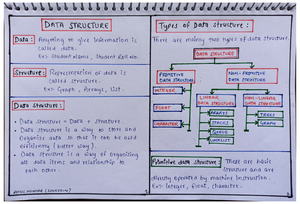 DATA STRUCTURE
Data: Anything to give information is
called data.
Ex: Student Name, Student Roll no.
Structure: Representation of data is
called structure.
Ex: Graph, Arrays, List.
Data Structure:
• Data structure = Data + Structure.
• Data Structure is a way to store and
Organize data so that it can be used
efficiently (better way).
• Data structure is a way of organizing
all data items and relationship to
each other.
Types of Data Structure:
There are mainly two types of data structure.
DATA STRUCTURE
PRIMITIVE
DATA STRUCTURE
NON-PRIMITIVE
DATA STRUCTURE
INTEGER
FLOAT
CHARACTER
LINEAR
DATA STRUCTURE
ARRAYS
STACKS
QUEUE
LINKLIST
NON-LINEAR
DATA STRUCTURE
TREES
GRAPH
Primitive data structure: There are basic
structure and are
directly operated by machine instruction.
Ex: Integer, float, character.